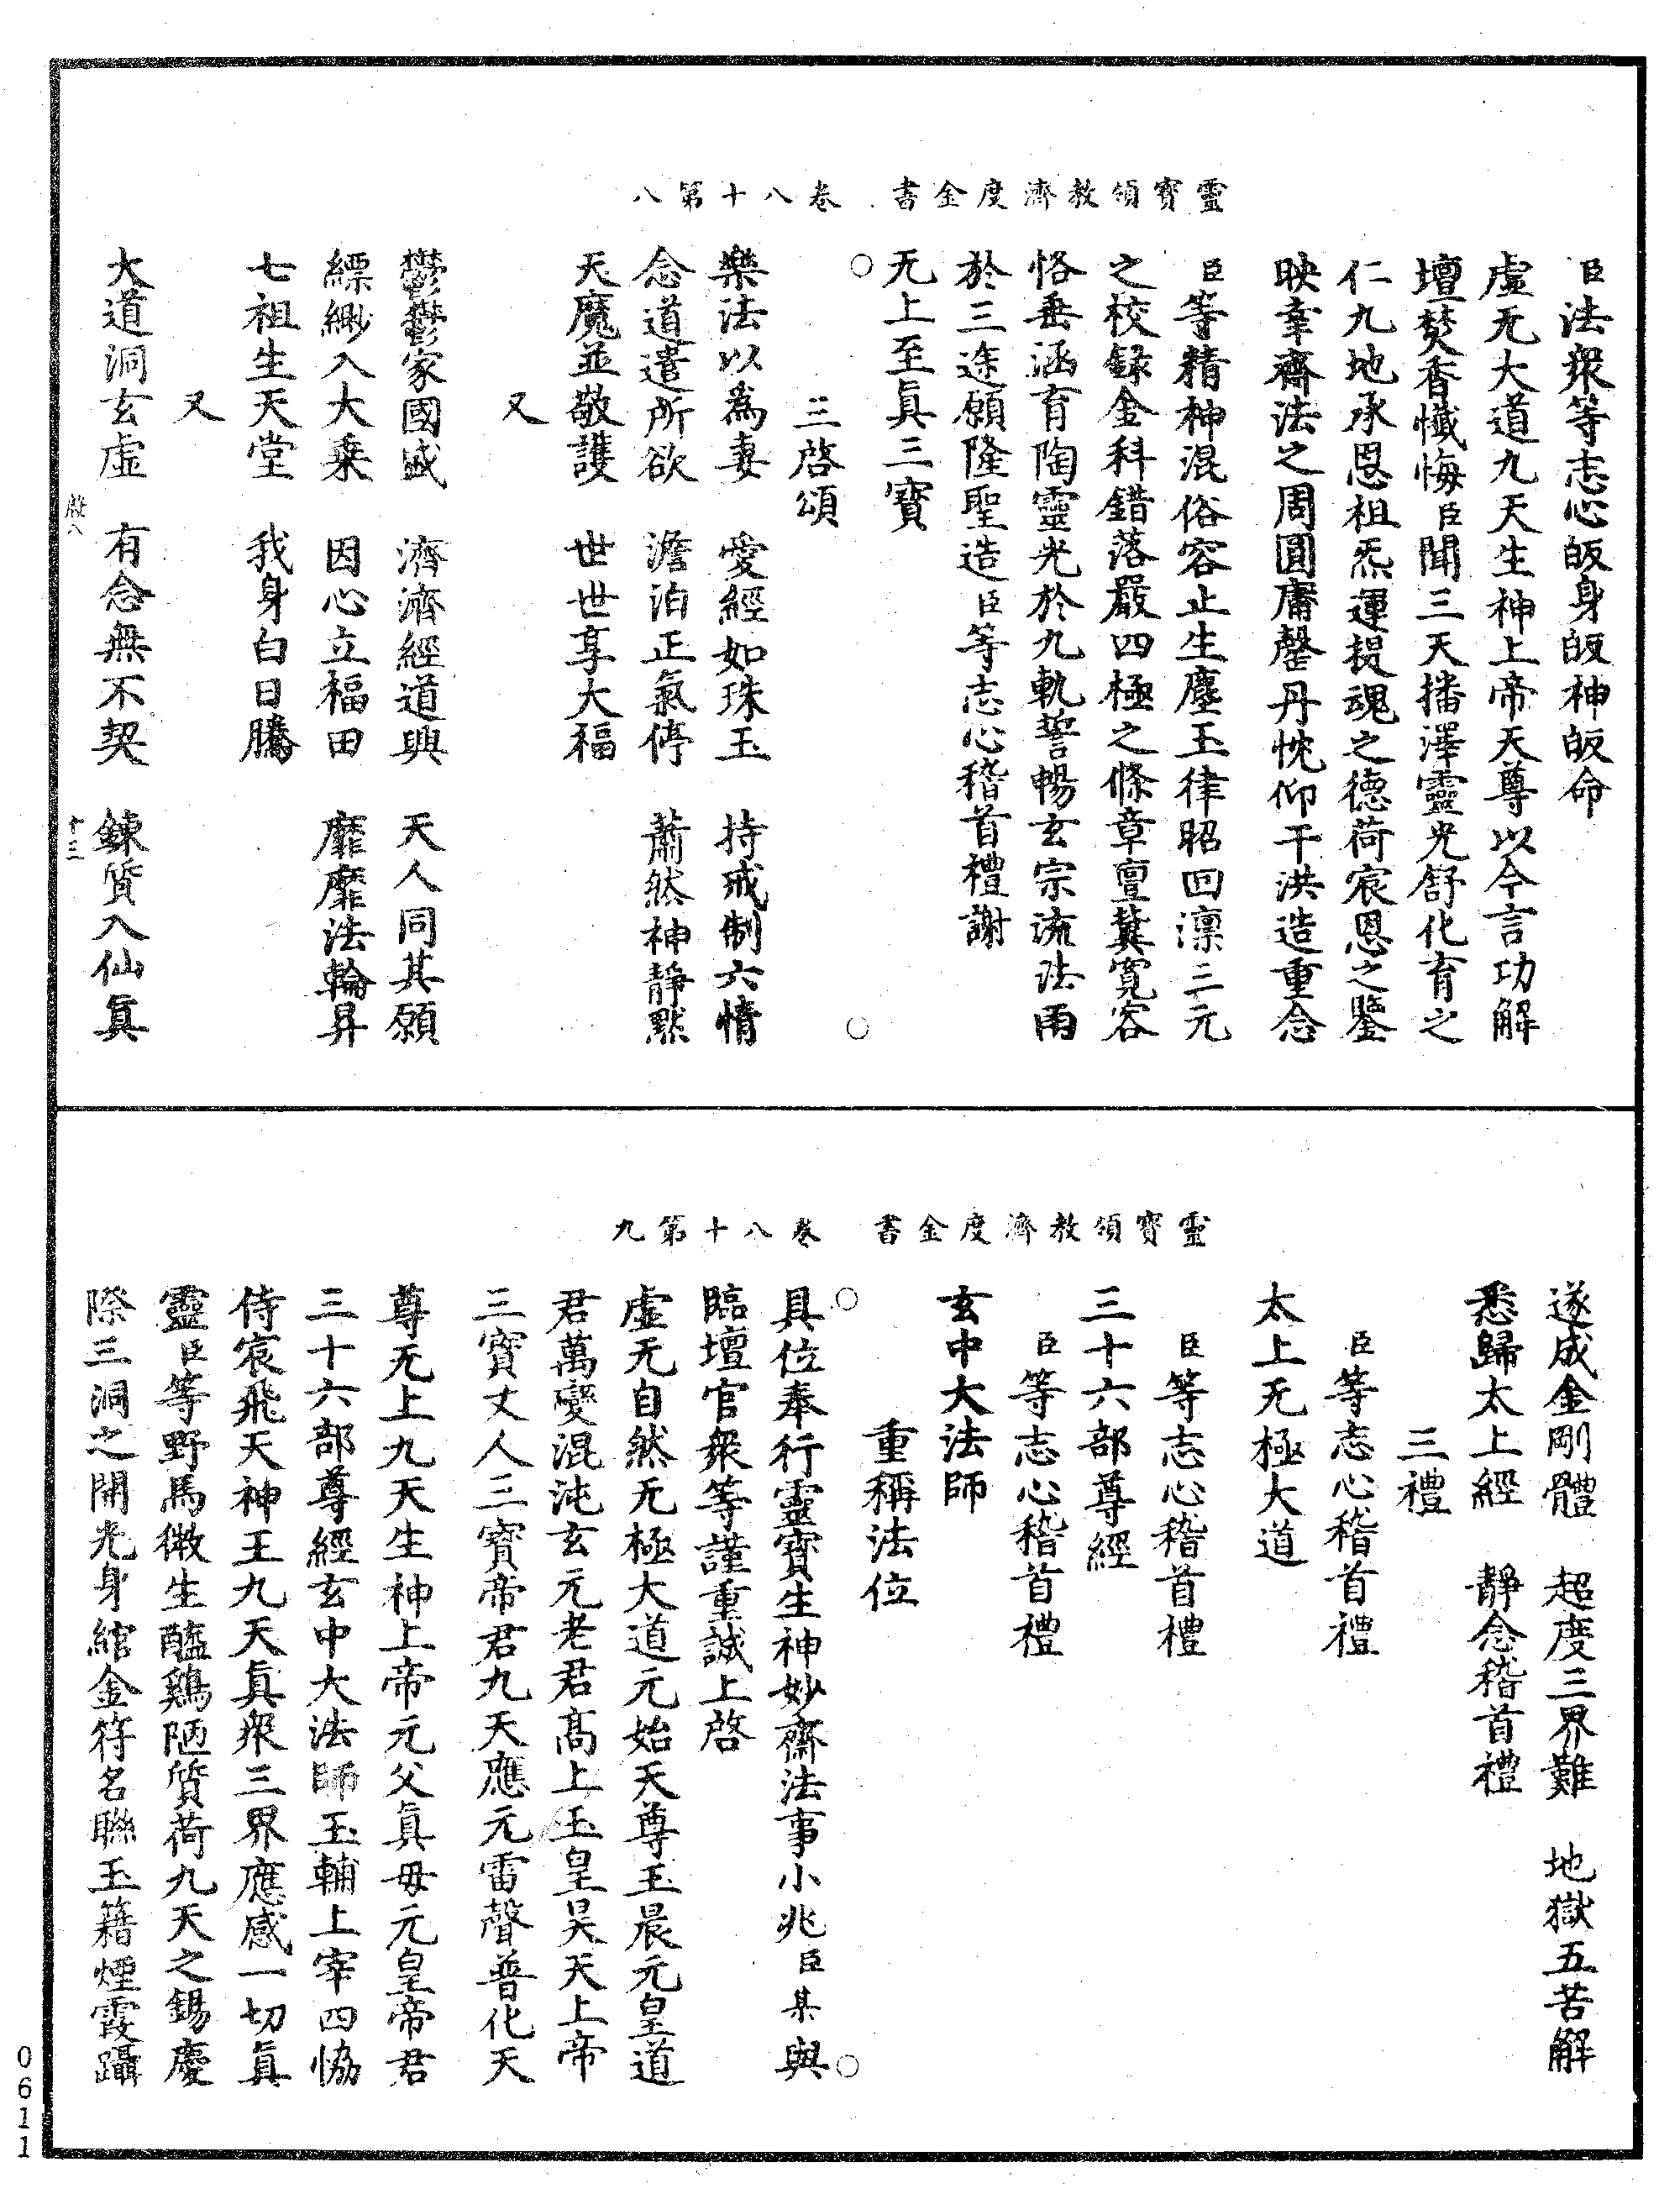 靈寶領教濟度金書 卷八十第八
臣法衆等志心皈身皈神皈命
虛无大道九天生神上帝天尊以今言功解
壇焚香懺悔臣聞三天播澤靈光舒化育之
仁九地承恩祖炁運提魂之德荷宸恩之鑒
映幸齋法之周圓庸罄丹忱仰干洪造重念
臣等精神混俗容止生塵玉律昭回凛三元
之校錄金科錯落嚴四極之條章亶冀寬容
恪垂涵育陶靈光於九軌誓暢玄宗流法雨
於三途願隆聖造臣等志心稽首禮謝
无上至眞三寶
○ ○
三啓頌
樂法以爲妻 愛經如珠玉 持戒制六情
念道遣所欲 澹泊正氣停 蕭然神靜默
天魔並敬護 世世享大福
又
鬱鬱家國盛 濟濟經道興 天人同其願
縹緲入大乗 因心立福田 靡靡法輪昇
七祖生天堂 我身白日騰
又
大道洞玄虛 有念無不契 鍊質入仙眞
殷八 十三
靈寶領教濟度金書 卷八十第九
遂成金剛體 超度三界難 地獄五苦解
悉歸太上經 靜念稽首禮
三禮
臣等志心稽首禮
太上无極大道
臣等志心稽首禮
三十六部尊經
臣等志心稽首禮
玄中大法師
重稱法位
○ ○
具位奉行靈寶生神妙齋法事小兆臣某與
臨壇官衆等謹重誠上啓
虛无自然无極大道元始天尊玉晨元皇道
君萬變混沌玄元老君高上玉皇昊天上帝
三寶丈人三寶帝君九天應元雷聲普化天
尊无上九天生神上帝元父眞母元皇帝君
三十六部尊經玄中大法師玉輔上宰四恊
侍宸飛天神王九天眞衆三界應感一切眞
靈臣等野馬微生醯鷄陋質荷九天之錫慶
際三洞之開光身綰金符名聯玉籍煙霞躡
0611